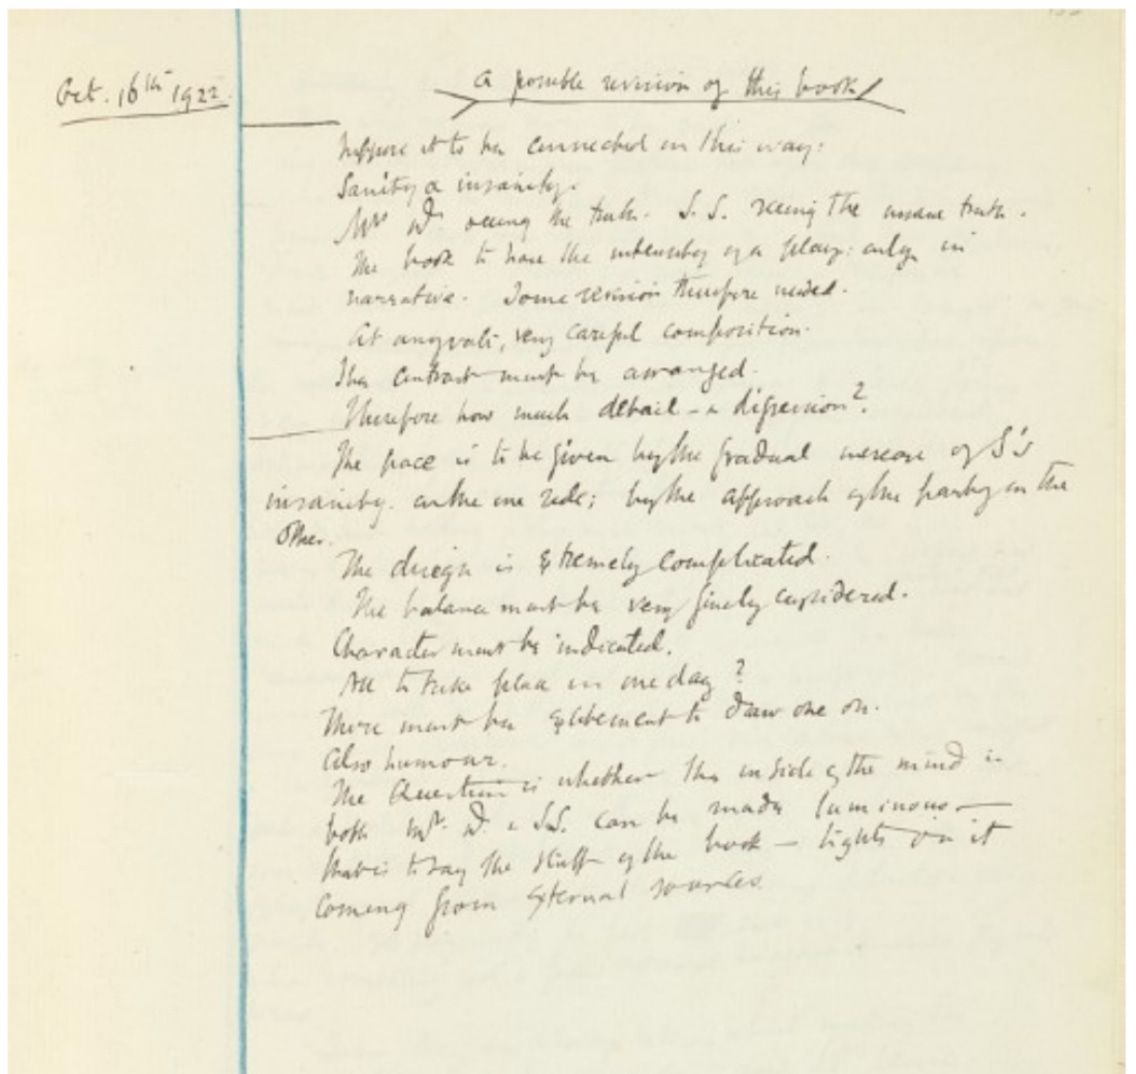 Oct. 16th 1922.
A possible revision of this book
Suppose it to be connected in this way:
Sanity & insanity.
Mrs D. seeing the truth. S.S. seeing the insane truth.
The book to have the intensity of a play: only in
narrative. Some revision therefore needed.
At any rate, very careful composition.
The contrast must be arranged.
Therefore how much detail - & digression?
The pace is to be given by the gradual increase of S's
insanity. on the one side; by the approach of the party on the
other.
The design is extremely complicated.
The balance must be very finely considered.
Character must be indicated.
All to take place in one day?
There must be excitement to draw one on.
Also humour.
The Question is whether the inside of the mind in
both Mrs. D. & S.S. can be made luminous —
that is to say the stuff of the book — lights on it
coming from external sources.